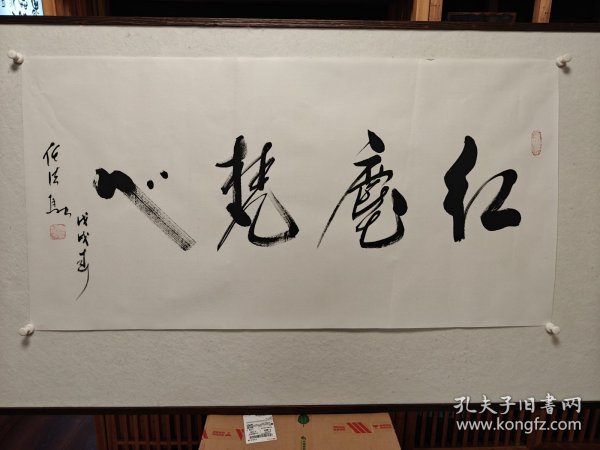 红尘梵心
戊戌春
任法融
孔夫子旧书网
www.kongfz.com